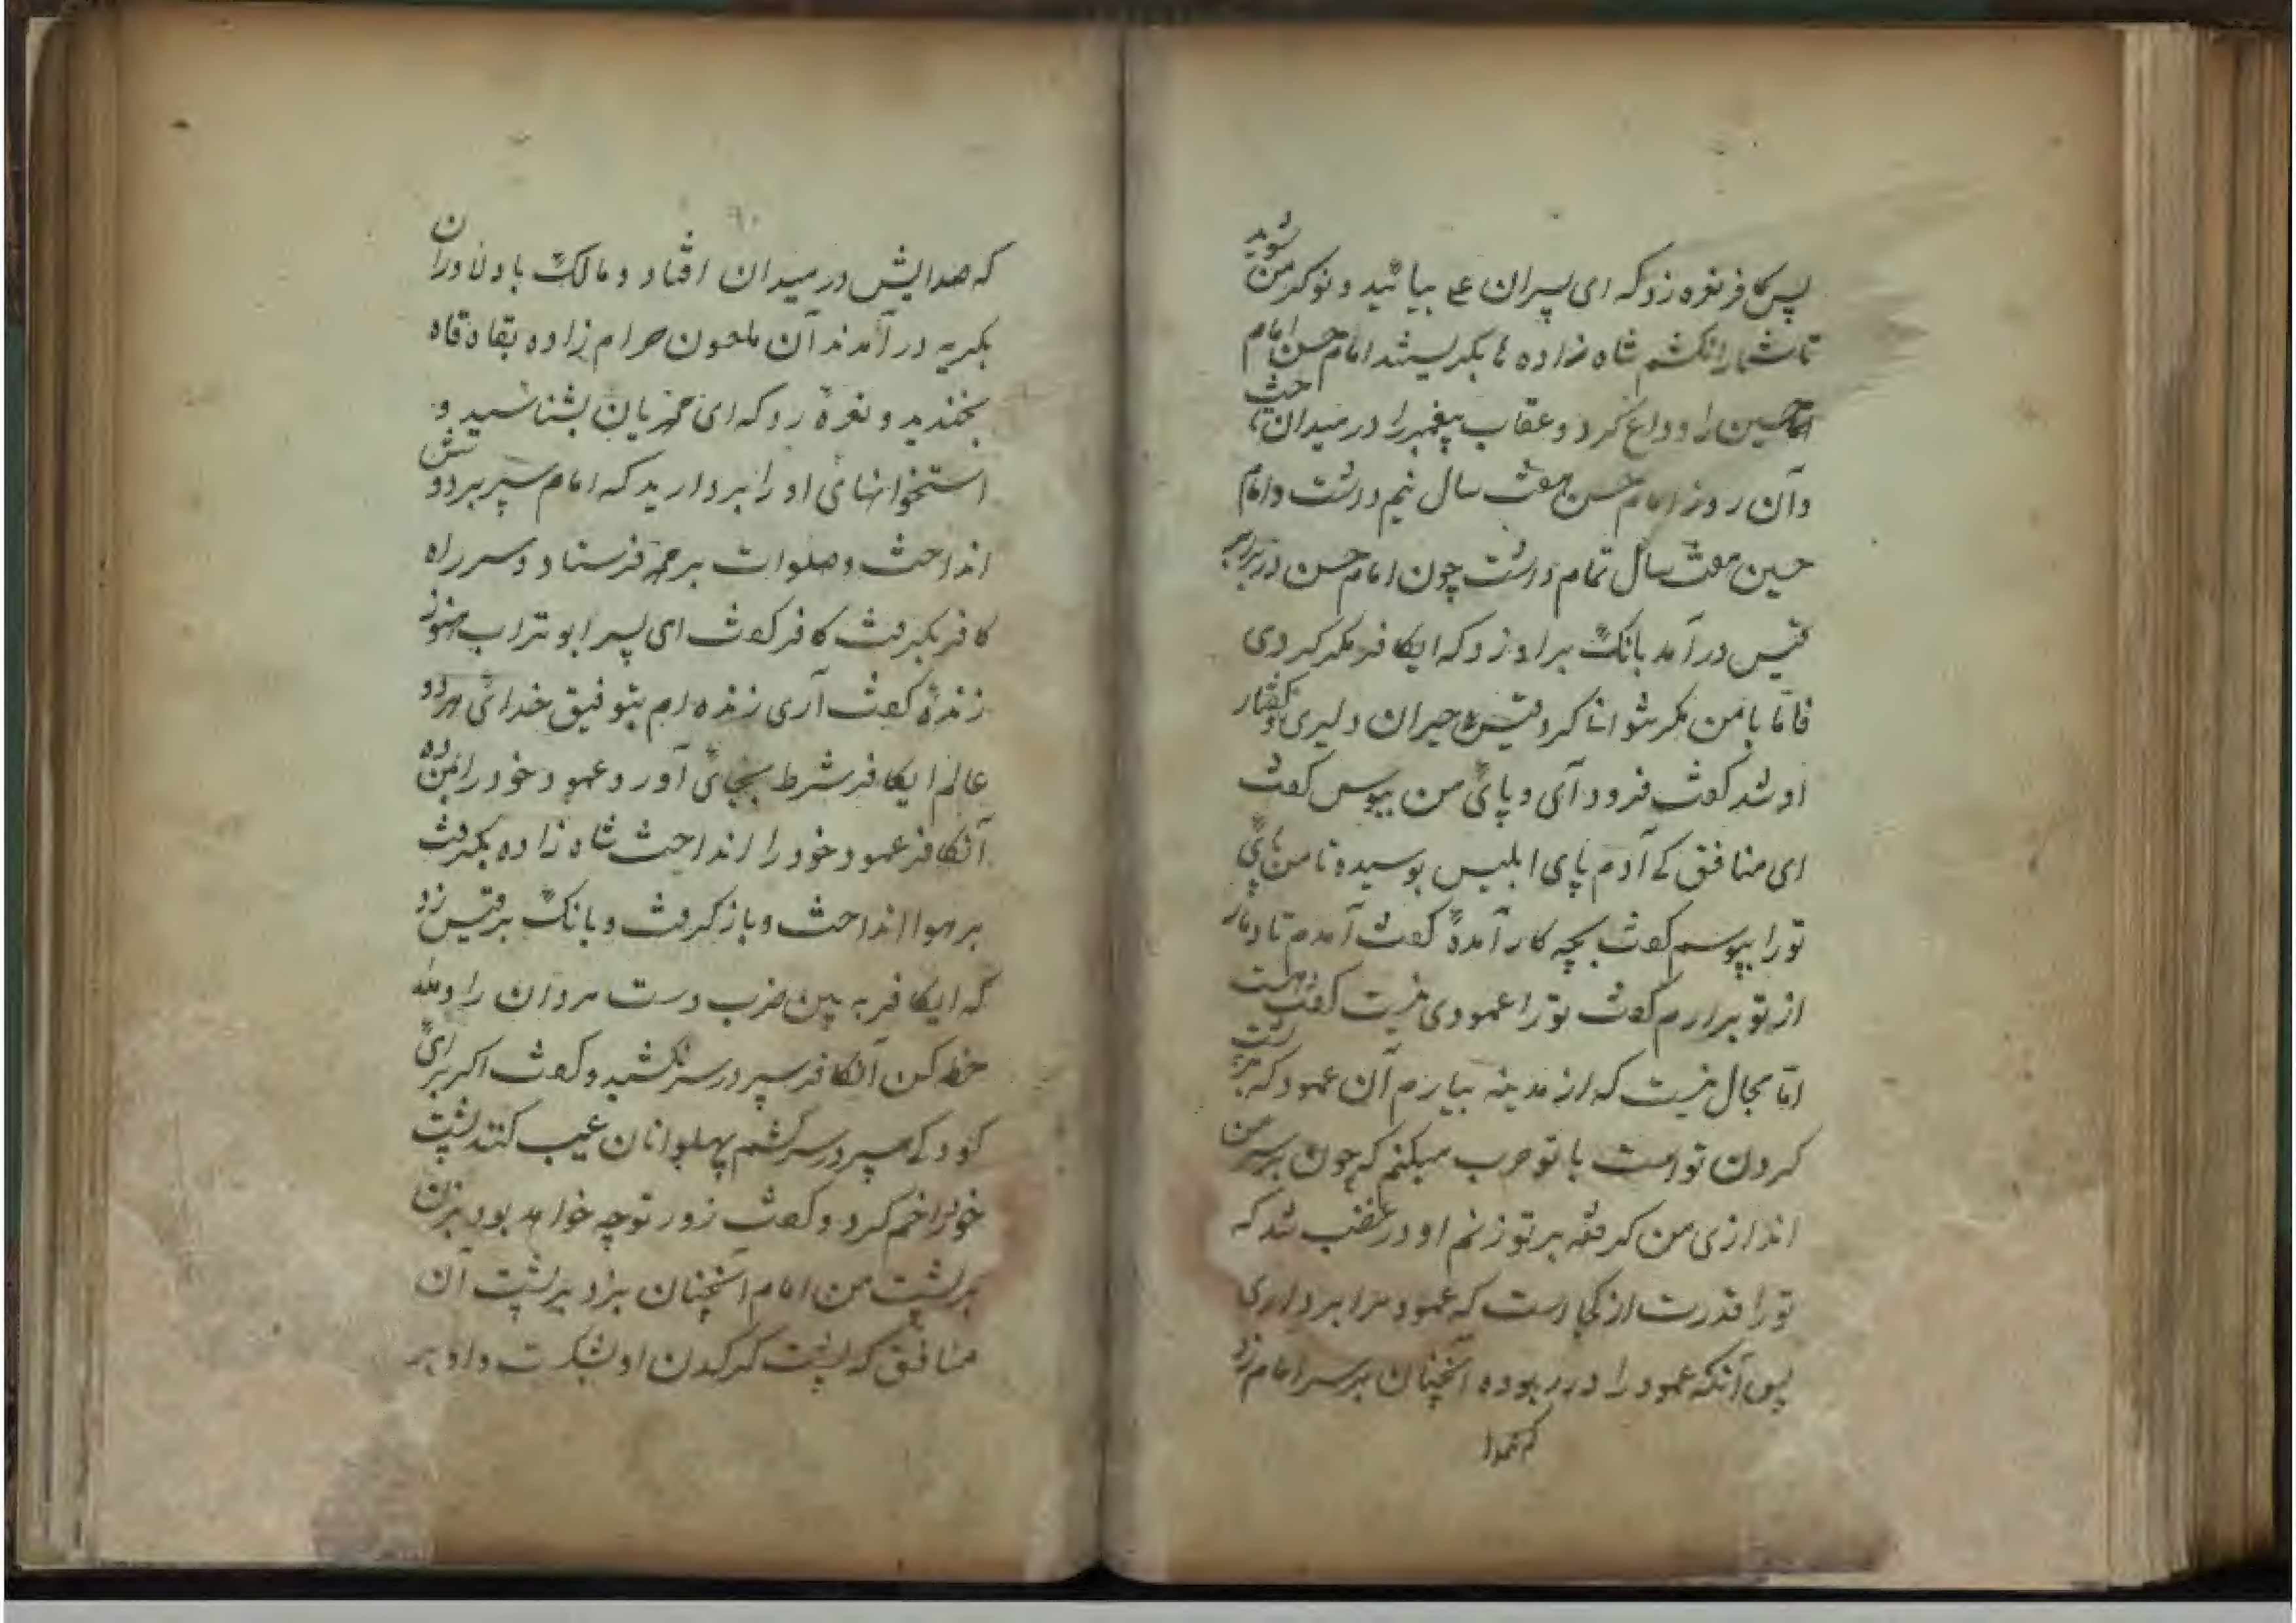 پس کافر نعره زد که ای پسران علی بیائید و نوکر من شوید
تا شما را نکشم شاه زاده ها بگریستند امام حسن امام
حسین را وداع کرد و عقاب پیغمبر را در میدان تاخت
و آن روز امام حسن هفت سال نیم داشت و امام
حسین هفت سال تمام داشت چون امام حسن در برابر
قیس درآمد بانگ بر او زد که ایکافر مکر کردی
فاما با من مکر نتوانی کرد قیس حیران دلیری و گفتار
او شد گفت فرود آی و پای من ببوس گفت
ای منافق کی آدم پای ابلیس بوسیده تا من پای
تو را ببوسم گفت بچه کار آمدهٔ گفت آمدم تا دمار
از تو برارم گفت تو را عمودی نیست گفت هست
اما مجال نیست که از مدینه بیارم آن عمود که بر پشت
گردن تو است با تو حرب میکنم که چون بر سر من
اندازی من گرفته بر تو زنم او در غضب شد که
تو را قدرت از کجا است که عمود مرا برداری
پس آنکه عمود را در ربوده آنچنان بر سر امام زد
که صدایش در میدان افتاد و مالک با دلاوران
بگریه درآمدند آن ملعون حرام زاده بقاه قاه
بخندید و نعرهٔ زد که ای محمدیان بشناسید و
استخوانهای او را بردارید که امام سپر بر دوشش
انداخت و صلوات بر محمد فرستاد و سر راه
کافر بگرفت کافر گفت ای پسر ابوتراب هنوز
زندهٔ گفت آری زنده ام بتوفیق خدائی هر دو
عالم ایکافر شرط بجای آور و عمود خود را بمن ده
آنکافر عمود خود را انداخت شاه زاده بگرفت
بر هوا انداخت و باز گرفت و بانگ بر قیس زد
که ایکافر به بین ضرب دست مردان را و
حظ کن آنکافر سپر در سر نکشید و گفت اگر برای
کودکی سپر در سر کشم پهلوانان عیب کنند پشت
خود را خم کرد و گفت زور تو چه خواهد بود بزن
بر پشت من امام آنچنان بزد بر پشت آن
منافق که پشت کرکدن او بشکست و او بر